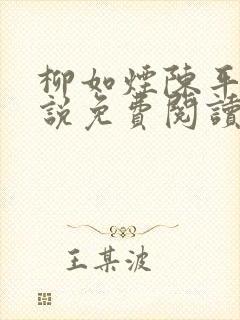 柳如煙陳平
說免費閱讀
王某波